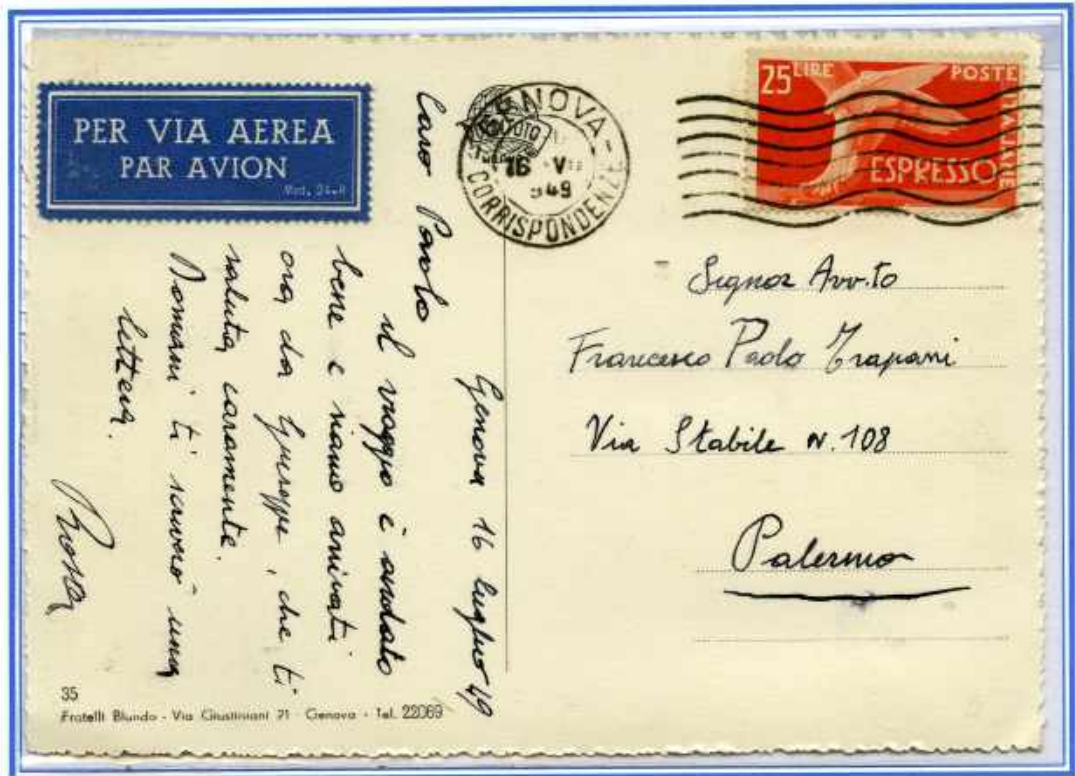 PER VIA AEREA
PAR AVION
Mod. 24-B
GENOVA -
CORRISPONDENZE
16 VII
949
25 LIRE
POSTE
ITALIANE
ESPRESSO
Genova 16 luglio 49
Caro Paolo
il viaggio è andato
bene e siamo arrivati
ora da Giuseppe, che ti
saluta caramente.
Domani ti scriverò una
lettera.
Rosa
Signor Avv.to
Francesco Paolo Trapani
Via Stabile N. 108
Palermo
35
Fratelli Blundo - Via Giustiniani 21 - Genova - Tel. 22069